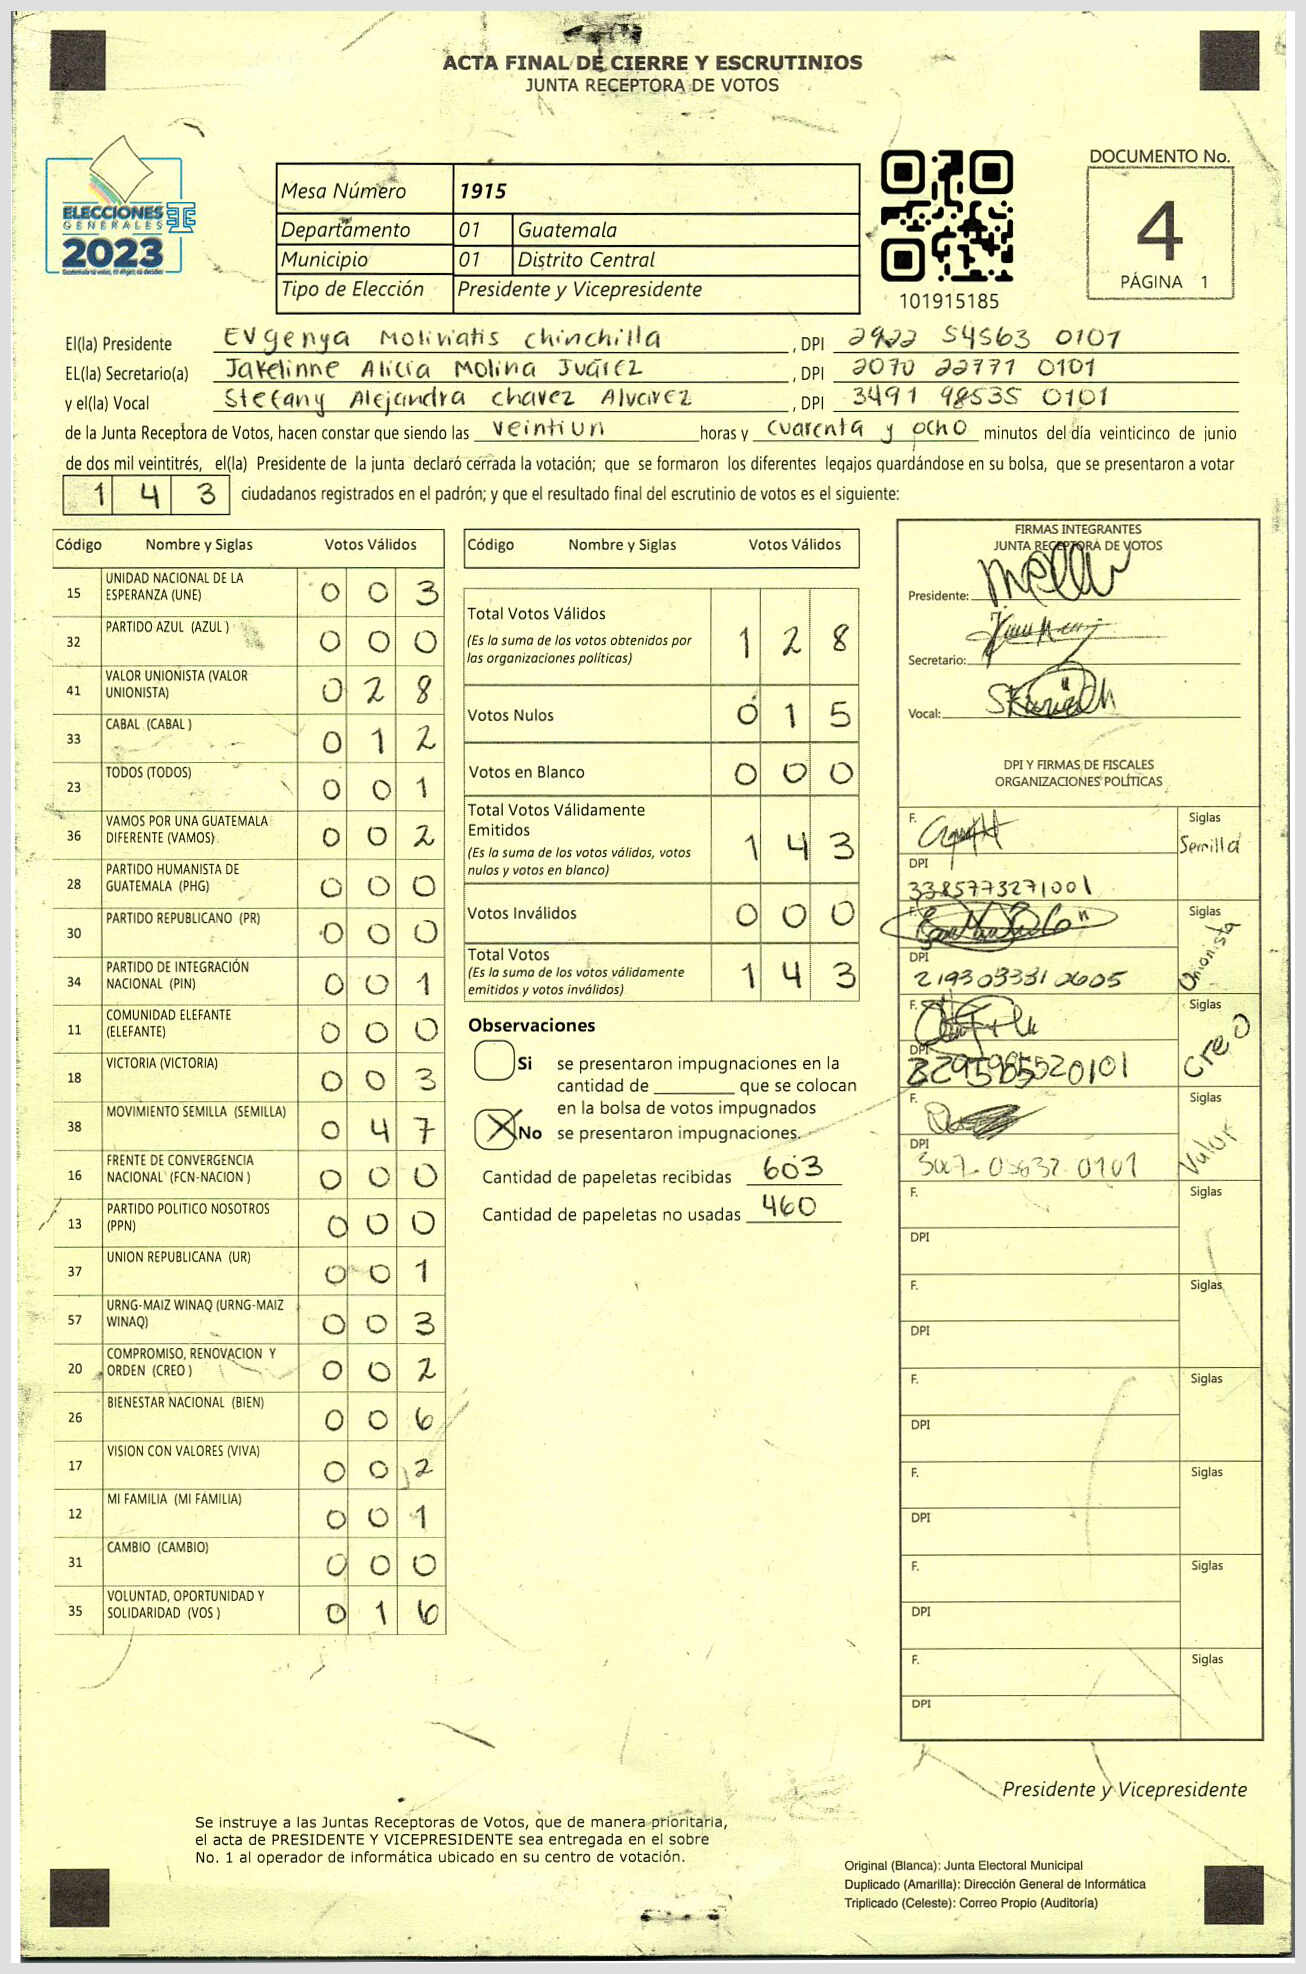 ACTA FINAL DE CIERRE Y ESCRUTINIOS
JUNTA RECEPTORA DE VOTOS
ELECCIONES
GENERALES
2023
Mesa Número 1915
Departamento 01 Guatemala
Municipio 01 Distrito Central
Tipo de Elección Presidente y Vicepresidente
101915185
DOCUMENTO No.
4
PÁGINA 1
El(la) Presidente Evgenya Moliviatis Chinchilla , DPI 2922 54563 0101
EL(la) Secretario(a) Jakelinne Alicia Molina Juárez , DPI 2070 22771 0101
y el(la) Vocal Stefany Alejandra Chavez Alvarez , DPI 3491 98535 0101
de la Junta Receptora de Votos, hacen constar que siendo las veintiun horas y cuarenta y ocho minutos del día veinticinco de junio
de dos mil veintitrés, el(la) Presidente de la junta declaró cerrada la votación; que se formaron los diferentes legajos guardándose en su bolsa, que se presentaron a votar
143 ciudadanos registrados en el padrón; y que el resultado final del escrutinio de votos es el siguiente:
Código Nombre y Siglas Votos Válidos
15 UNIDAD NACIONAL DE LA ESPERANZA (UNE) 003
32 PARTIDO AZUL (AZUL ) 000
41 VALOR UNIONISTA (VALOR UNIONISTA) 028
33 CABAL (CABAL ) 012
23 TODOS (TODOS) 001
36 VAMOS POR UNA GUATEMALA DIFERENTE (VAMOS) 002
28 PARTIDO HUMANISTA DE GUATEMALA (PHG) 000
30 PARTIDO REPUBLICANO (PR) 000
34 PARTIDO DE INTEGRACIÓN NACIONAL (PIN) 001
11 COMUNIDAD ELEFANTE (ELEFANTE) 000
18 VICTORIA (VICTORIA) 003
38 MOVIMIENTO SEMILLA (SEMILLA) 047
16 FRENTE DE CONVERGENCIA NACIONAL (FCN-NACION ) 000
13 PARTIDO POLITICO NOSOTROS (PPN) 000
37 UNION REPUBLICANA (UR) 001
57 URNG-MAIZ WINAQ (URNG-MAIZ WINAQ) 003
20 COMPROMISO, RENOVACION Y ORDEN (CREO ) 002
26 BIENESTAR NACIONAL (BIEN) 006
17 VISION CON VALORES (VIVA) 002
12 MI FAMILIA (MI FAMILIA) 001
31 CAMBIO (CAMBIO) 000
35 VOLUNTAD, OPORTUNIDAD Y SOLIDARIDAD (VOS ) 016
Código Nombre y Siglas Votos Válidos
Total Votos Válidos 128
(Es la suma de los votos obtenidos por
las organizaciones políticas)
Votos Nulos 015
Votos en Blanco 000
Total Votos Válidamente
Emitidos 143
(Es la suma de los votos válidos, votos
nulos y votos en blanco)
Votos Inválidos 000
Total Votos 143
(Es la suma de los votos válidamente
emitidos y votos inválidos)
Observaciones
Si se presentaron impugnaciones en la
cantidad de que se colocan
en la bolsa de votos impugnados
X No se presentaron impugnaciones.
Cantidad de papeletas recibidas 603
Cantidad de papeletas no usadas 460
FIRMAS INTEGRANTES
JUNTA RECEPTORA DE VOTOS
Presidente:
Secretario:
Vocal:
DPI Y FIRMAS DE FISCALES
ORGANIZACIONES POLÍTICAS
F. Siglas
Semilla
DPI
3385773271001
F. Siglas
Unionista
DPI
2193033310605
F. Siglas
Creo
DPI
F. Siglas
Valor
DPI
F. Siglas
DPI
F. Siglas
DPI
F. Siglas
DPI
F. Siglas
DPI
F. Siglas
DPI
F. Siglas
DPI
Presidente y Vicepresidente
Se instruye a las Juntas Receptoras de Votos, que de manera prioritaria,
el acta de PRESIDENTE Y VICEPRESIDENTE sea entregada en el sobre
No. 1 al operador de informática ubicado en su centro de votación.
Original (Blanca): Junta Electoral Municipal
Duplicado (Amarilla): Dirección General de Informática
Triplicado (Celeste): Correo Propio (Auditoría)